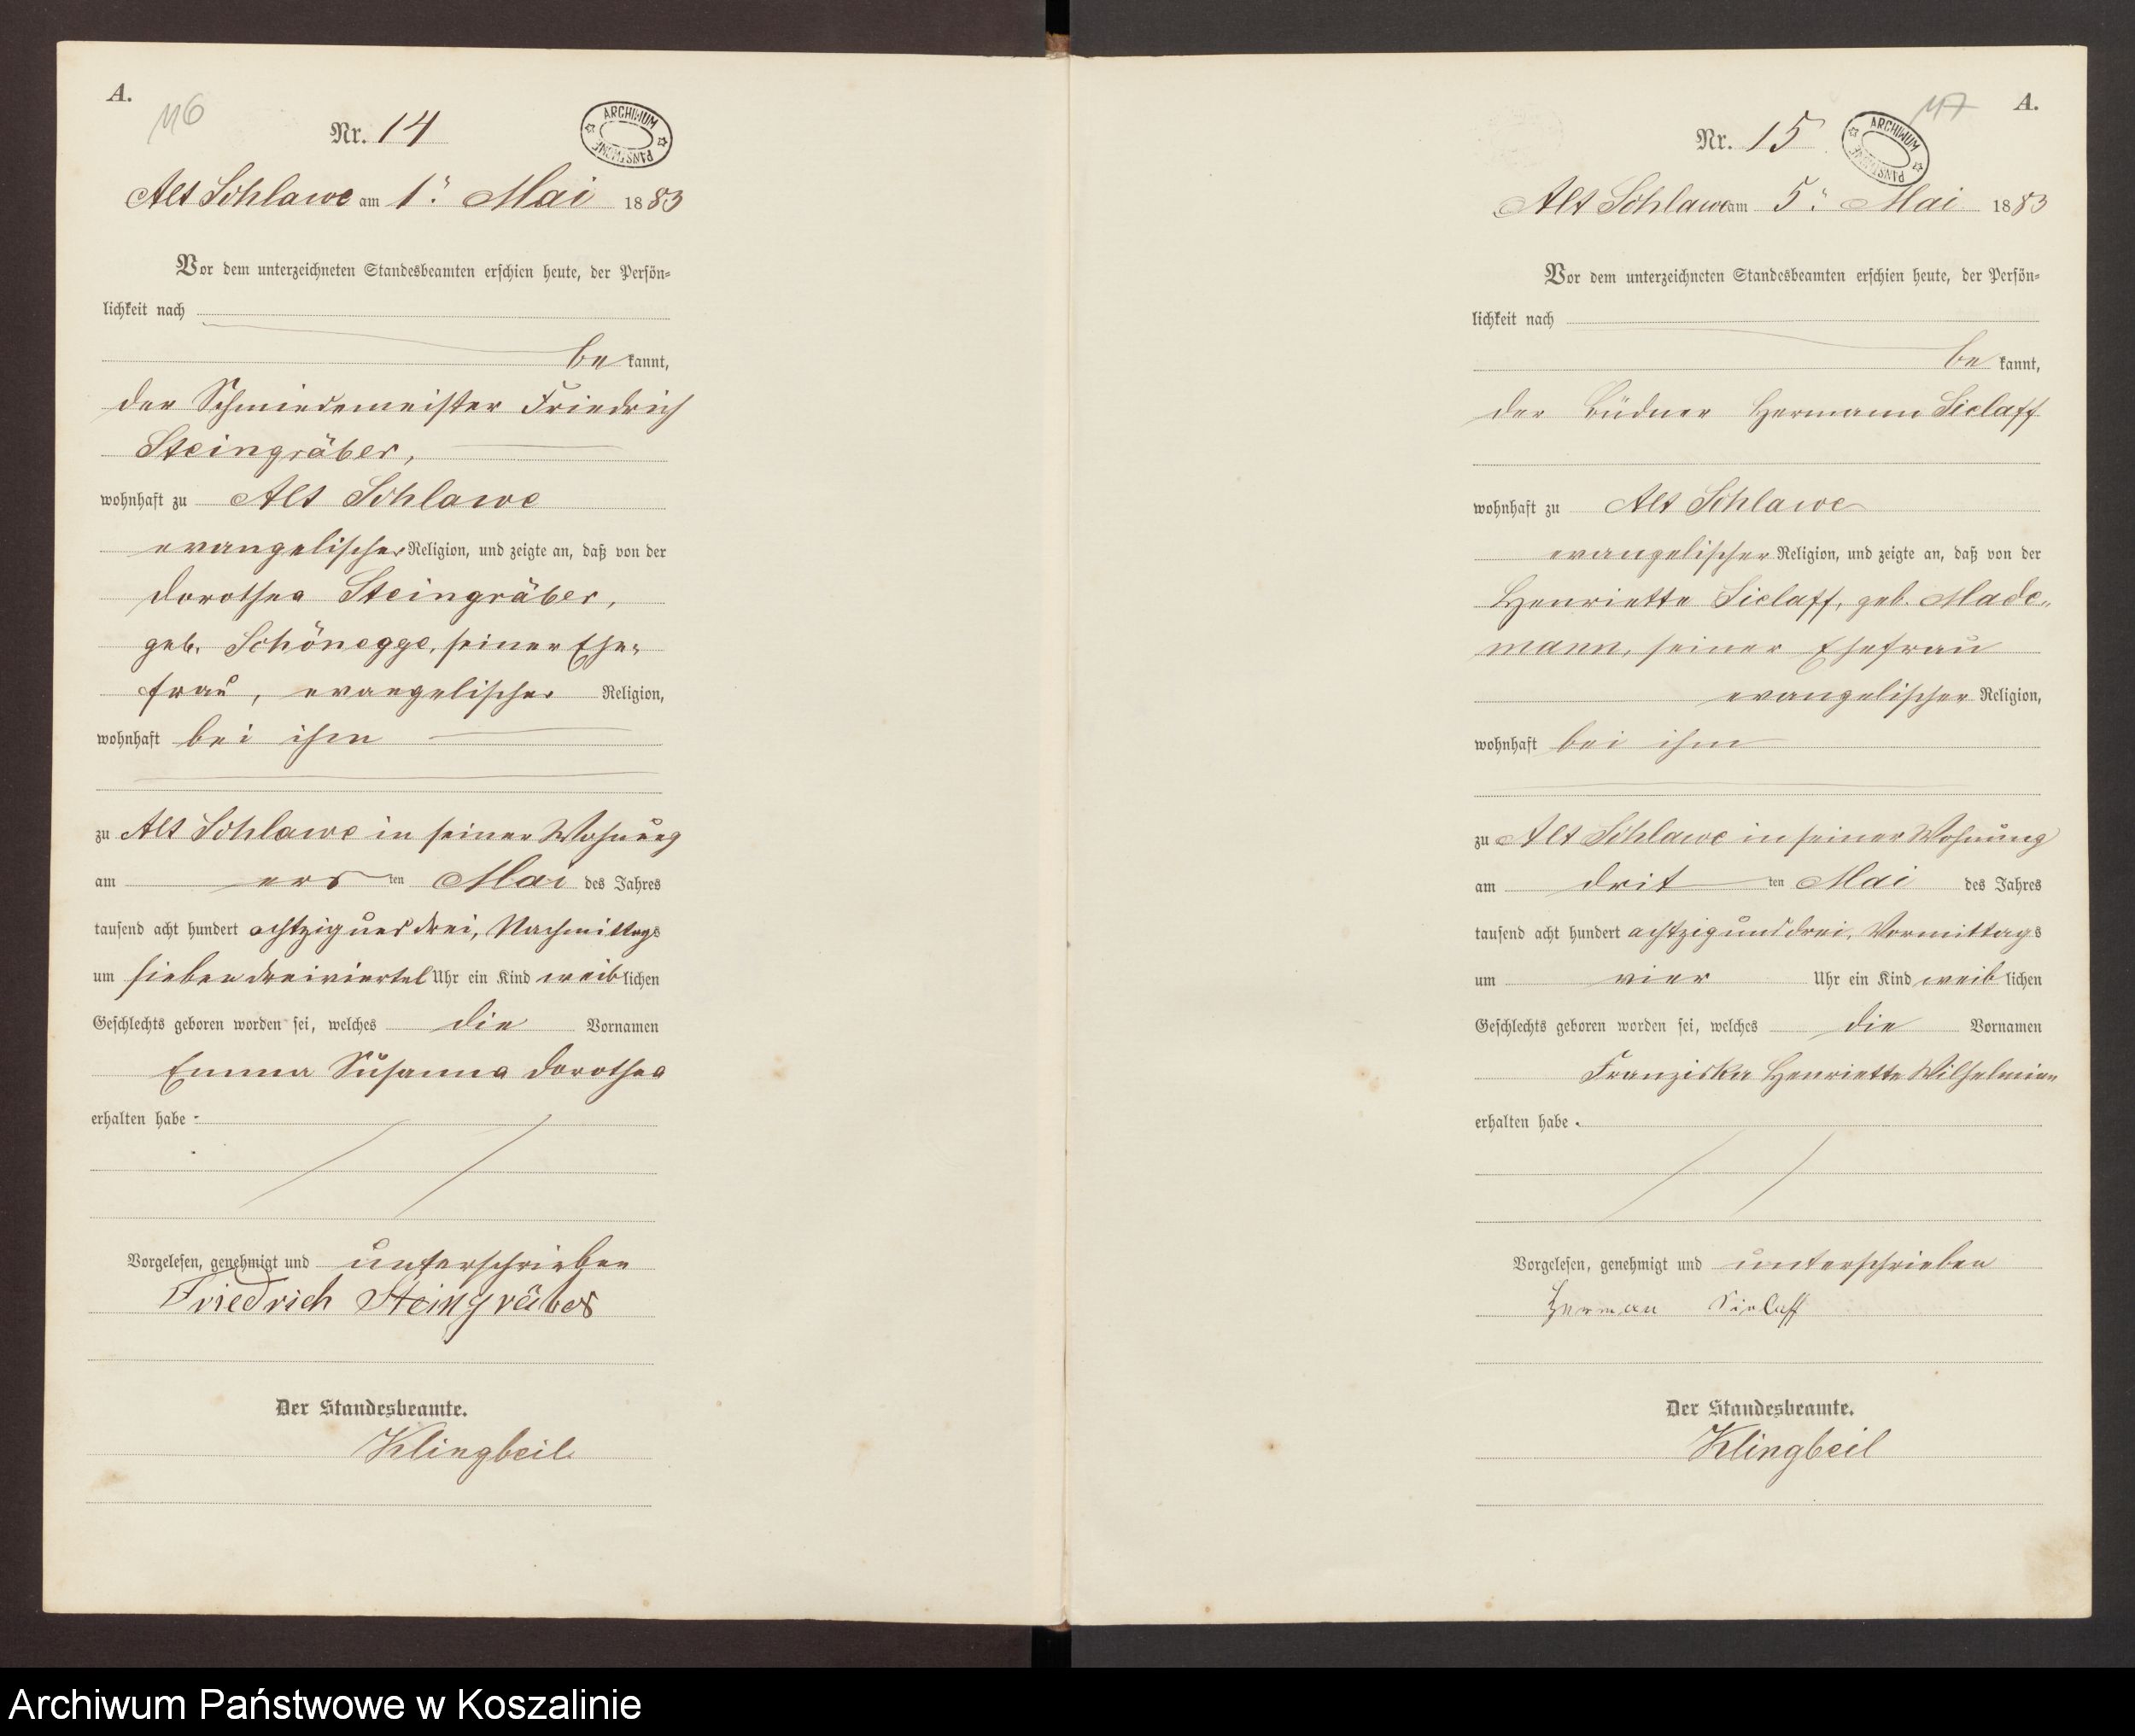 A.
116
Nr. 14
ARCHIWUM PAŃSTWOWE
Alt Schlawe am 1ᵗ. Mai 1883
Vor dem unterzeichneten Standesbeamten erschien heute, der Persön=
lichkeit nach
be kannt,
der Schmiedemeister Friedrich
Steingräber,
wohnhaft zu Alt Schlawe
evangelischer Religion, und zeigte an, daß von der
Dorothea Steingräber,
geb. Schönegge, seiner Ehe-
frau, evangelischer Religion,
wohnhaft bei ihm
zu Alt Schlawe in seiner Wohnung
am ers ten Mai des Jahres
tausend acht hundert achtzig und drei, Nachmittags
um sieben dreiviertel Uhr ein Kind weib lichen
Geschlechts geboren worden sei, welches die Vornamen
Emma Susanna Dorothea
erhalten habe
Vorgelesen, genehmigt und unterschrieben
Friedrich Steingräber
Der Standesbeamte.
Klingbeil
117
A.
Nr. 15
ARCHIWUM PAŃSTWOWE
Alt Schlawe am 5ᵗ. Mai 1883
Vor dem unterzeichneten Standesbeamten erschien heute, der Persön=
lichkeit nach
be kannt,
der Büdner Hermann Sielaff
wohnhaft zu Alt Schlawe
evangelischer Religion, und zeigte an, daß von der
Henriette Sielaff, geb. Made-
mann, seiner Ehefrau
evangelischer Religion,
wohnhaft bei ihm
zu Alt Schlawe in seiner Wohnung
am drit ten Mai des Jahres
tausend acht hundert achtzig und drei, Vormittags
um vier Uhr ein Kind weib lichen
Geschlechts geboren worden sei, welches die Vornamen
Franziska Henriette Wilhelmine
erhalten habe.
Vorgelesen, genehmigt und unterschrieben
Herman Sielaff
Der Standesbeamte.
Klingbeil
Archiwum Państwowe w Koszalinie